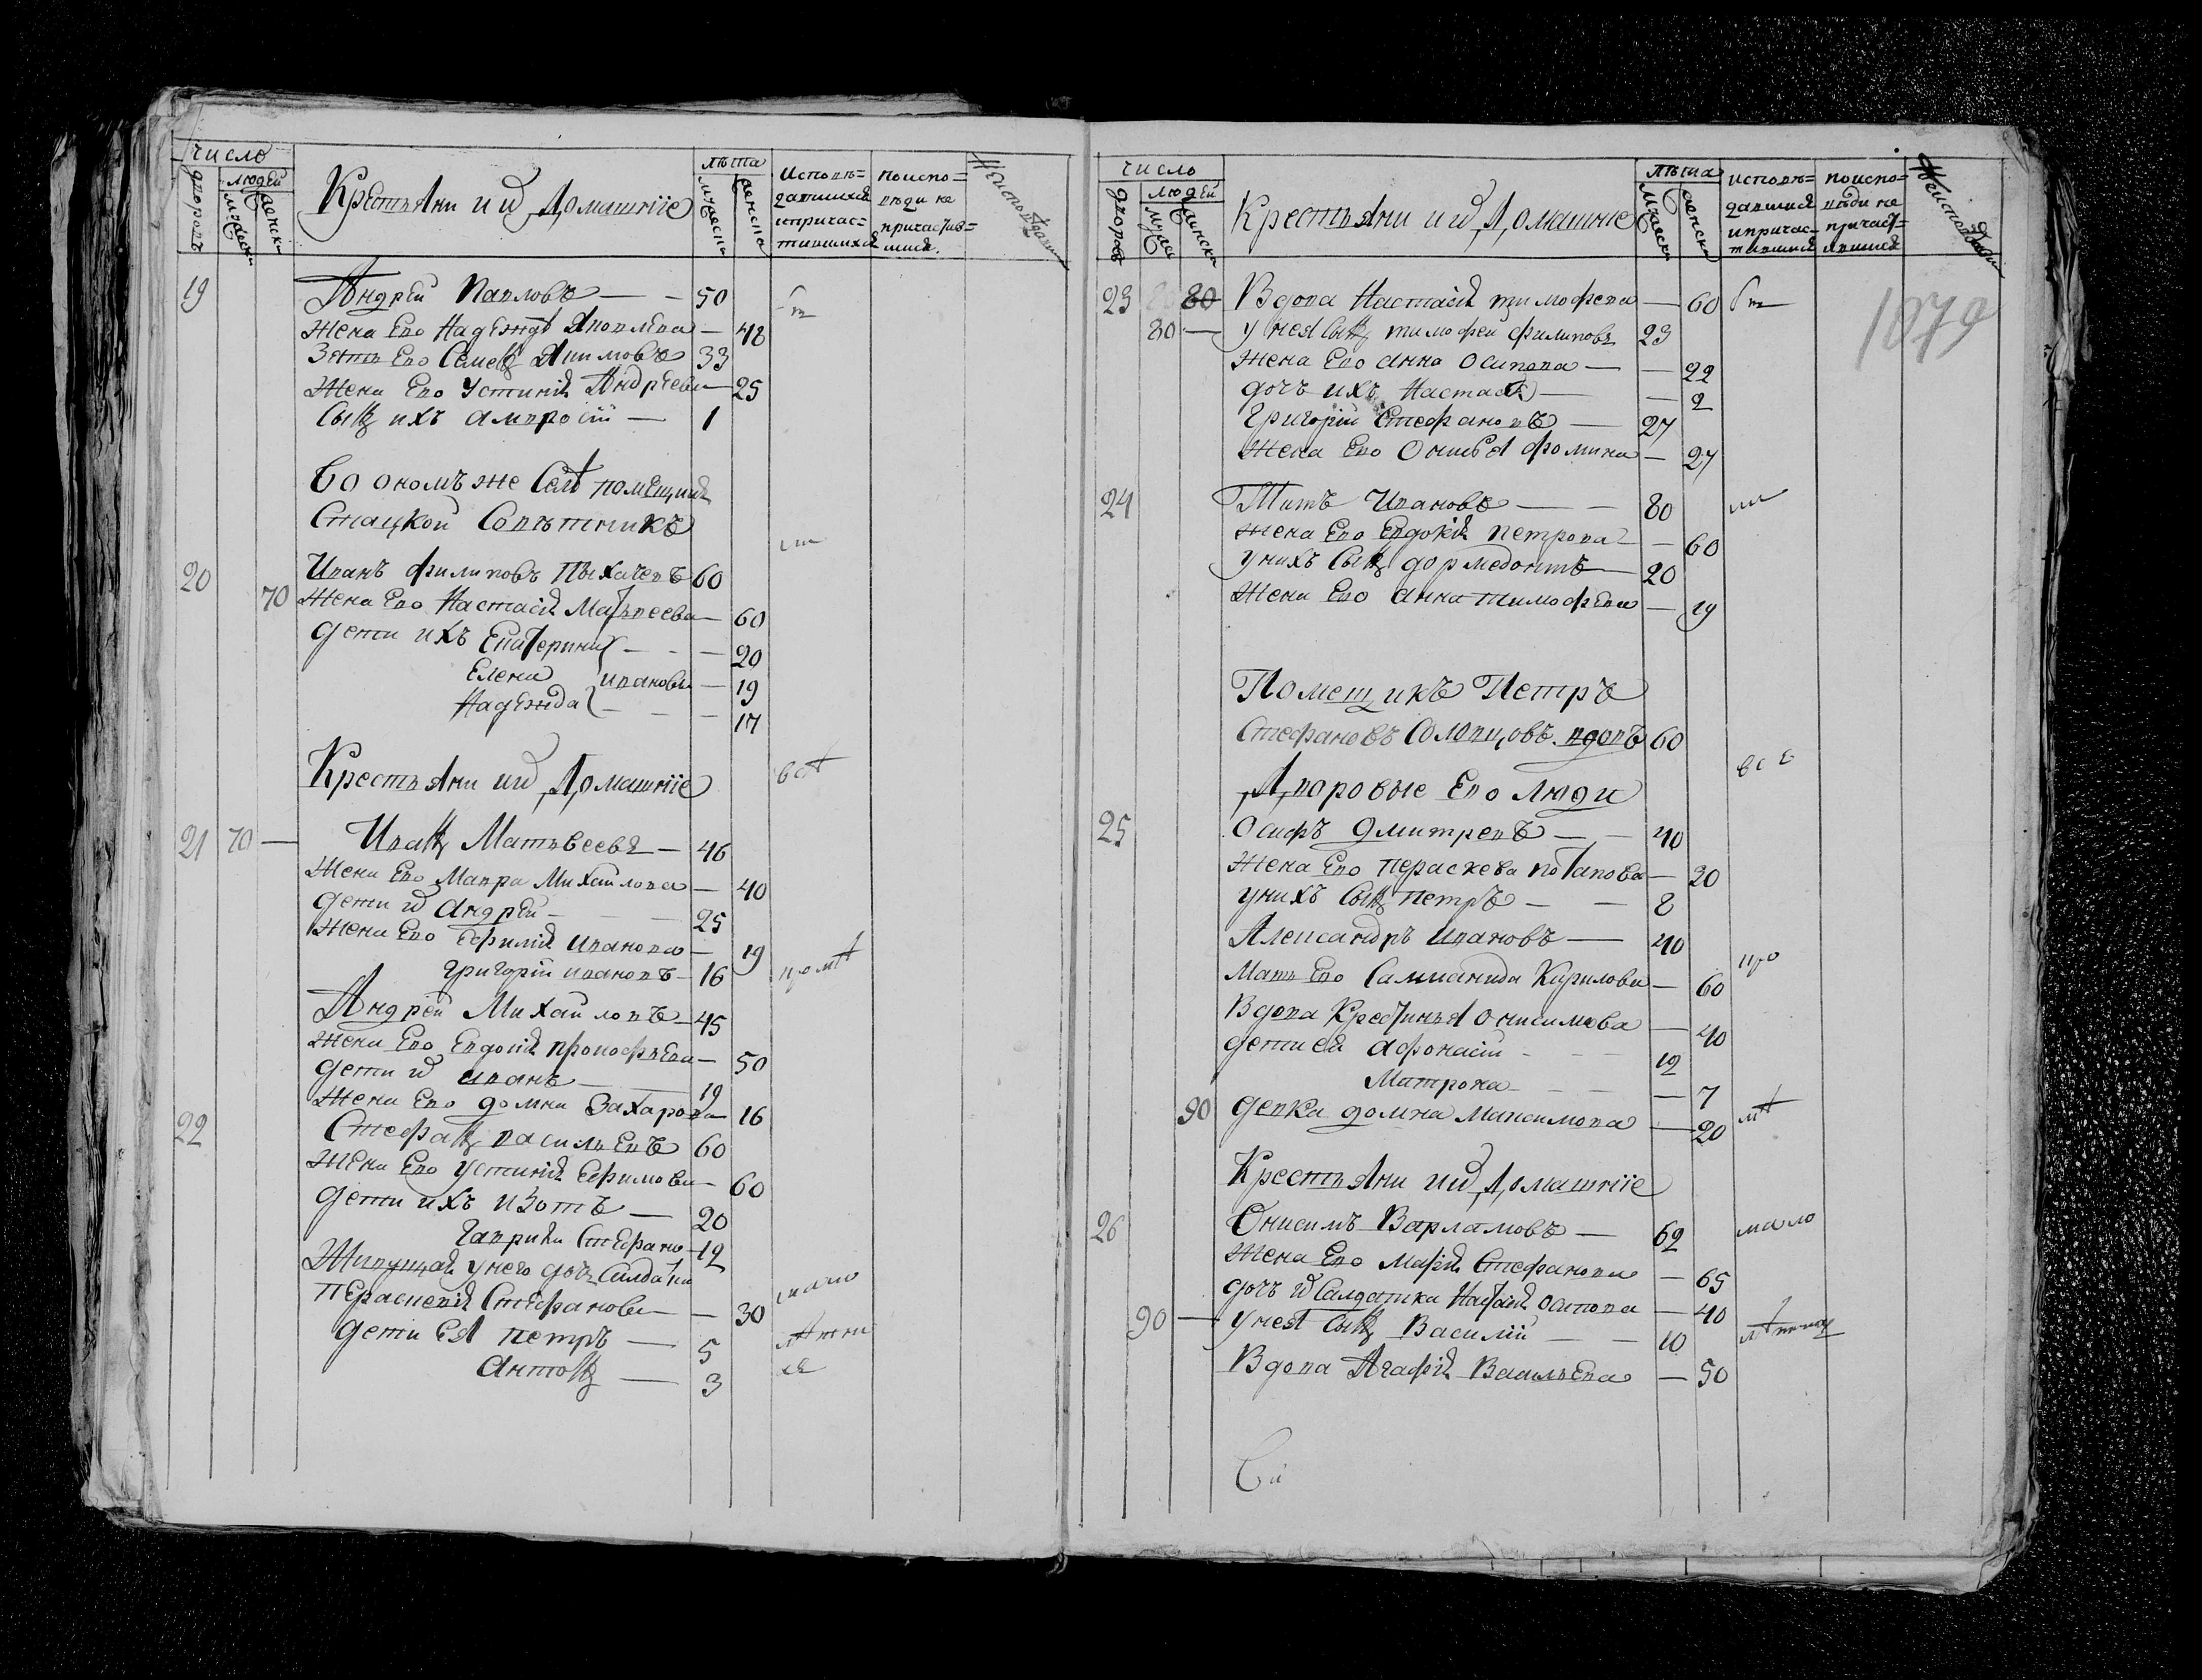 число
дворовъ людей
мужеска женска
Крестьяни и ихъ домашніе
лѣта
мужеска женска
исповѣ=
давшихся
и причас=
тившихся
по испо=
вѣди не
причастив=
шихся.
Не исповѣдав
19 Андрей Павловъ — 50
Жена Ево Надѣжда Яковлева — 48
Зеть Ево Семенъ Якимовъ 33
Жена Ево Устинія Андреева — 25
Сынъ ихъ Амвросій — 1
Во ономъ же Селѣ помещикъ
Стацкой Советникъ
20 Иванъ Филиповъ Пыхачевъ 60
70 Жена Ево Настасія Матвеева — 60
дети ихъ Екатерина — 20
Елена ивановы — 19
Надѣжда — 17
Крестьяни и ихъ домашніе
всѣ
21 70 — Иванъ Матвеевъ — 46
Жена Ево Мавра Михаилова — 40
дети их Андрей — 25
Жена Ево Ефимія Иванова — 19
Григорій ивановъ — 16
Андрей Михаиловъ — 45
Жена Ево Евдокія Прокофьева — 50
дети их иванъ — 19
Жена Ево домна Захарова 16
22 Стефанъ васильевъ 60
Жена Ево Устинія Ефимова — 60
дети ихъ изотъ — 20
Гаврила Стефано — 12
Живущая у него дочь Салдатка
Параскевія Стефанова — 30
дети Ея петръ — 5
Антонъ — 3
мало
лѣтни
ея
число
дворовъ людей
мужеска женска
Крестьяни и ихъ домашніе
лѣта
мужеска женска
исповѣ=
давшихся
и причас=
тившихся
по испо=
вѣди не
причаст=
ившихся
Не исповѣдав
1879
23 80 Вдова Настасія тимофеева — 60
80 — у нея Сынъ тимофеи филиповъ 23
Жена Ево анна Осипова — 22
дочь ихъ Настасія — 2
Григорій Стефановъ — 27
Жена Ево Онисья фомина — 27
24 Титъ Ивановъ — 80
Жена Ево Евдокія Петрова — 60
у нихъ Сынъ дормедонтъ 20
Жена Ево анна тимофѣева — 19
Помещикъ Петръ
Стефановъ Соловцовъ вдовъ 60
Дворовые Ево Люди
все
25 Осифъ Дмитревъ — 40
Жена Ево пераскева потапова — 30
у нихъ Сынъ петръ — 8
Александръ Ивановъ — 40
Мать Ево Саломанида Кирилова — 60
Вдова Крестинья Онисимова — 40
дети ея афонасій — 12
Матрона — 7
90 девка домна Максимова — 20
Крестьяни и ихъ домашніе
26 Онисимъ Варламовъ — 62
мало
Жена Ево Марія Стефанова — 65
дочь их Салдатка Настасія Осипова — 40
90 — у нея Сынъ Василій — 10
Вдова Агафія Васильева — 50